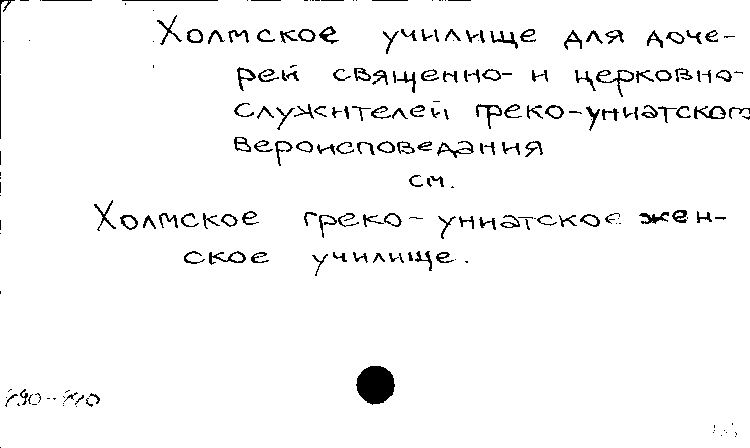 Холмское училище для доче-
рей священно- и церковно-
служителей греко-униатского
вероисповедания
см.
Холмское греко-униатское жен-
ское училище.